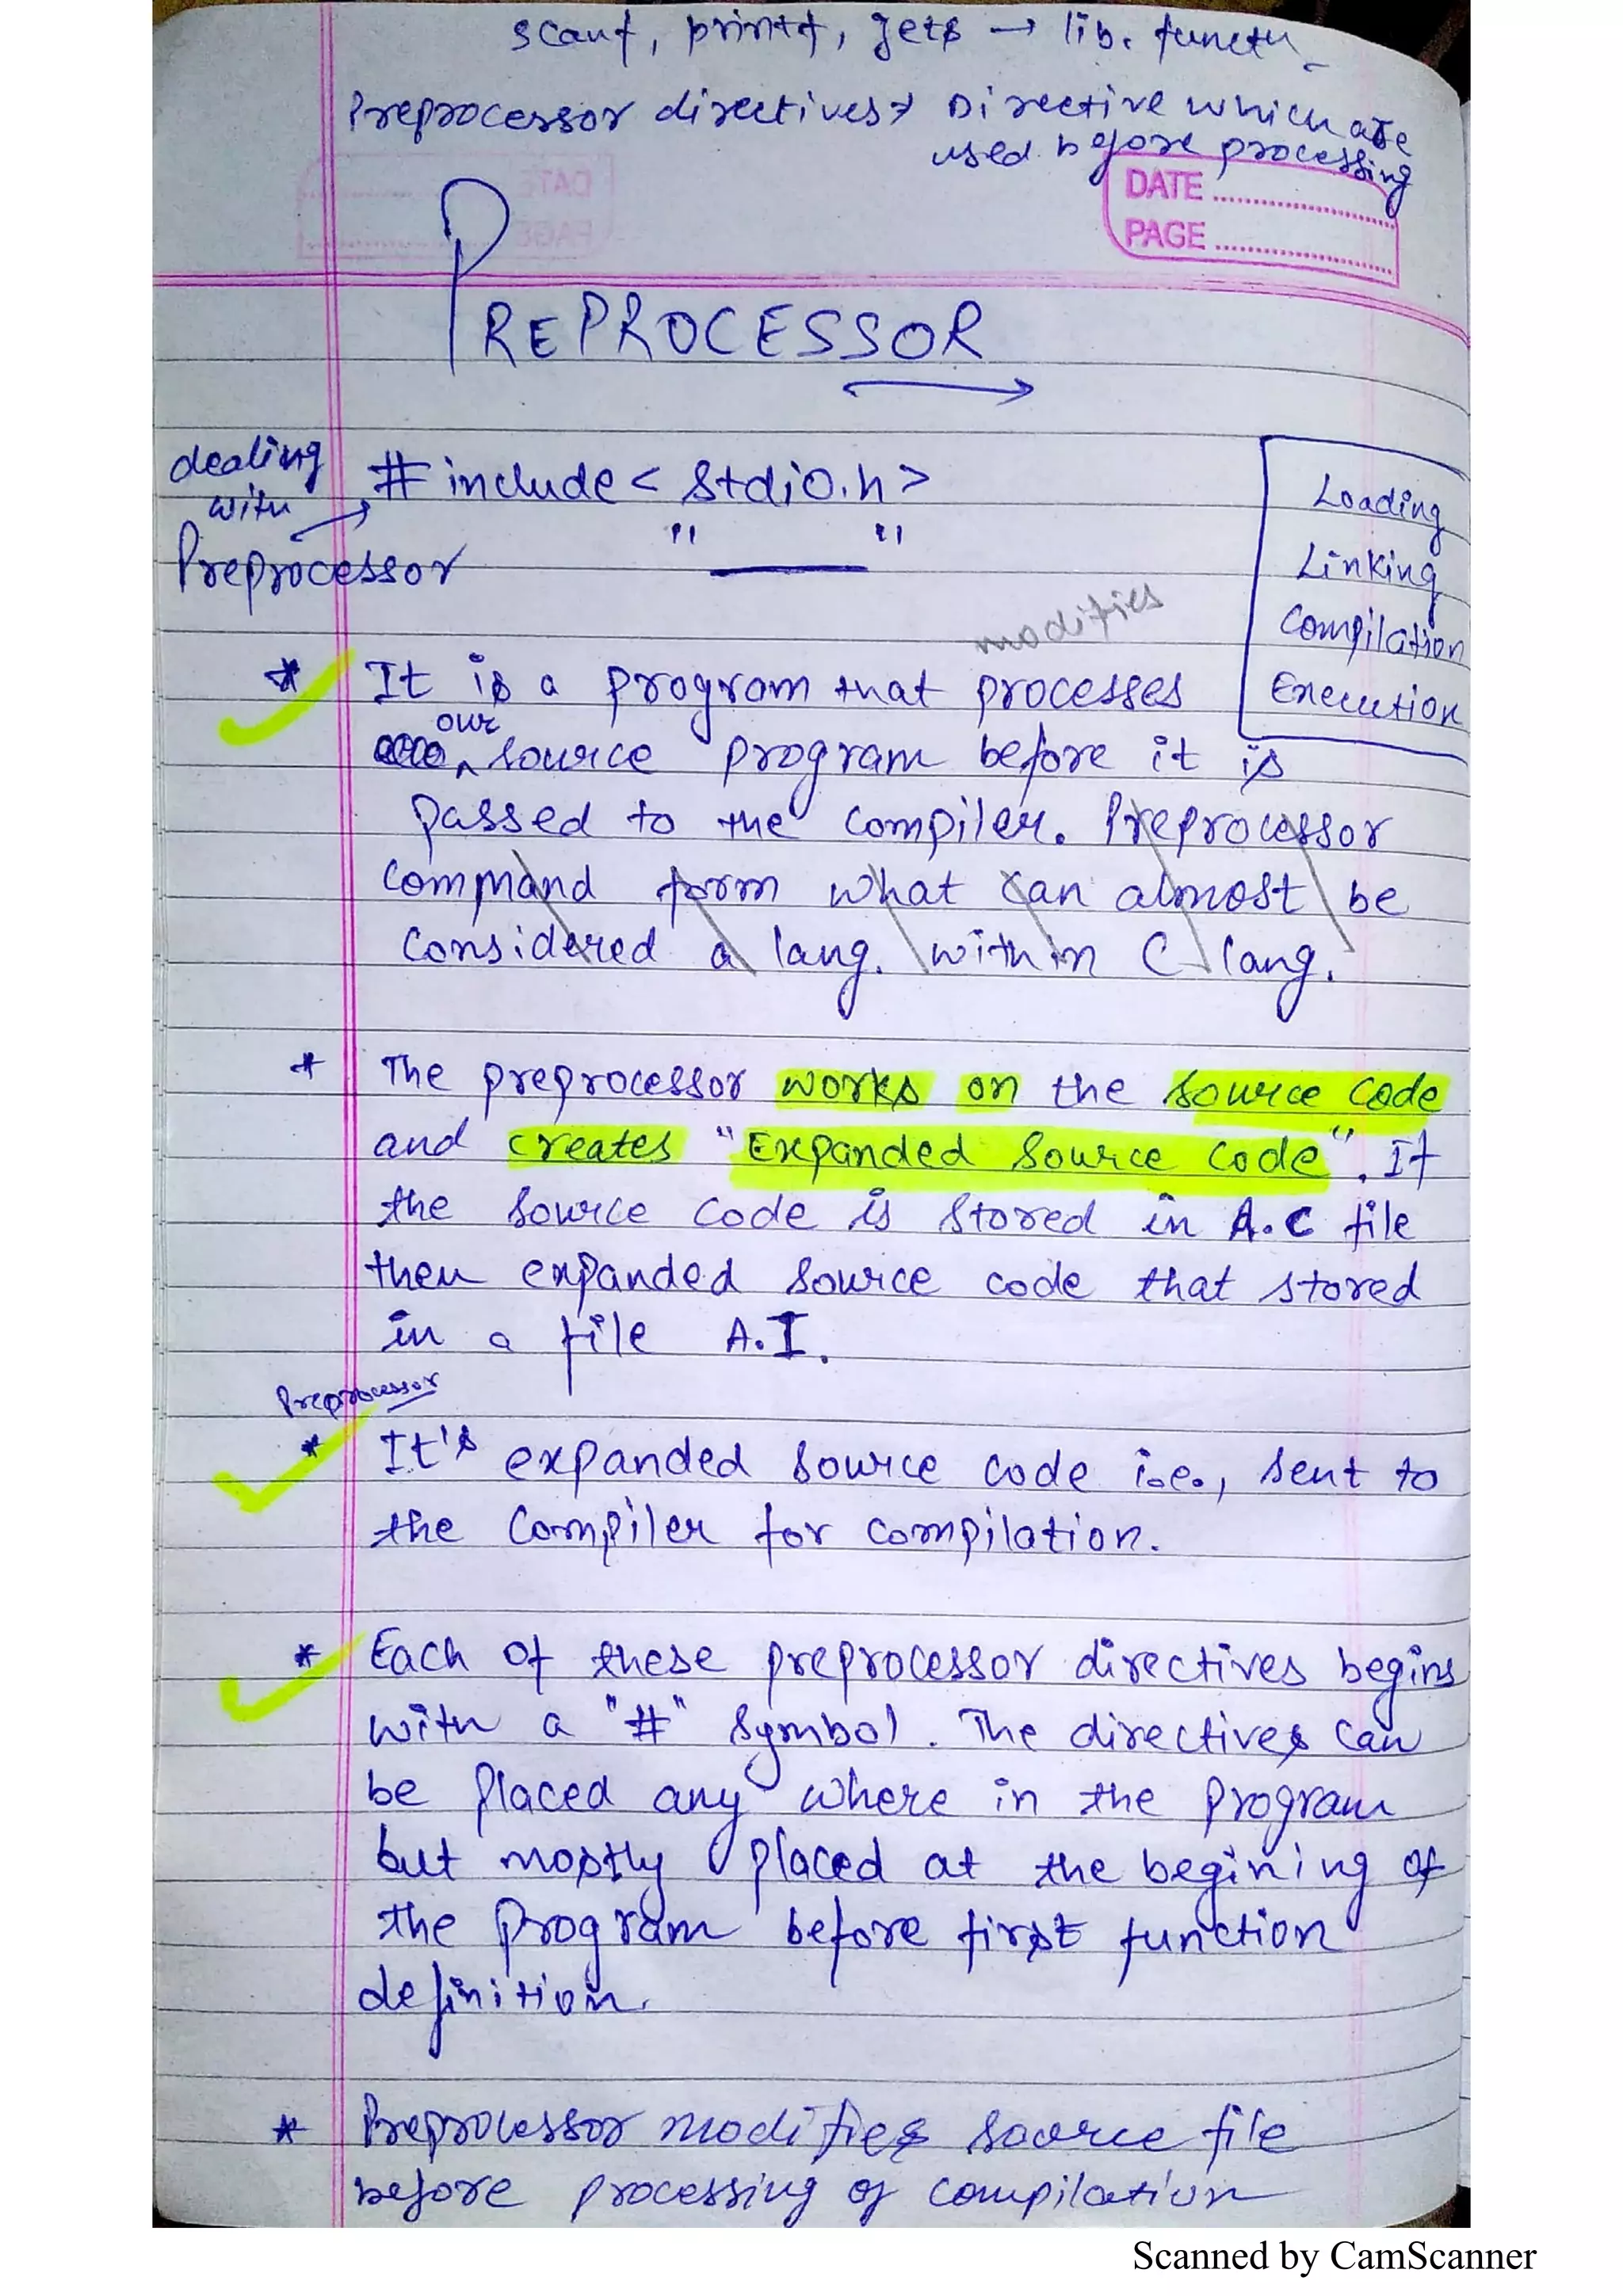 scanf, printf, gets → lib. functn
Preprocessor directives → Directive which are
used before processing
DATE
PAGE
PREPROCESSOR
dealing
with
Preprocessor
# include < stdio.h >
" ___ "
Loading
Linking
Compilation
Execution
modifies
* It is a program that processes
our
source program before it is
passed to the compiler. Preprocessor
command form what can almost be
considered a lang. within C lang.
* The preprocessor works on the source code
and creates "Expanded Source Code". If
the source code is stored in A.C file
then expanded source code that stored
in a file A.I.
Preprocessor
* It's expanded source code i.e., sent to
the compiler for compilation.
* Each of these preprocessor directives begins
with a "#" symbol. The directives can
be placed any where in the program
but mostly placed at the begining of
the program before first function
definition.
* Preprocessor modifies source file
before processing of compilation
Scanned by CamScanner